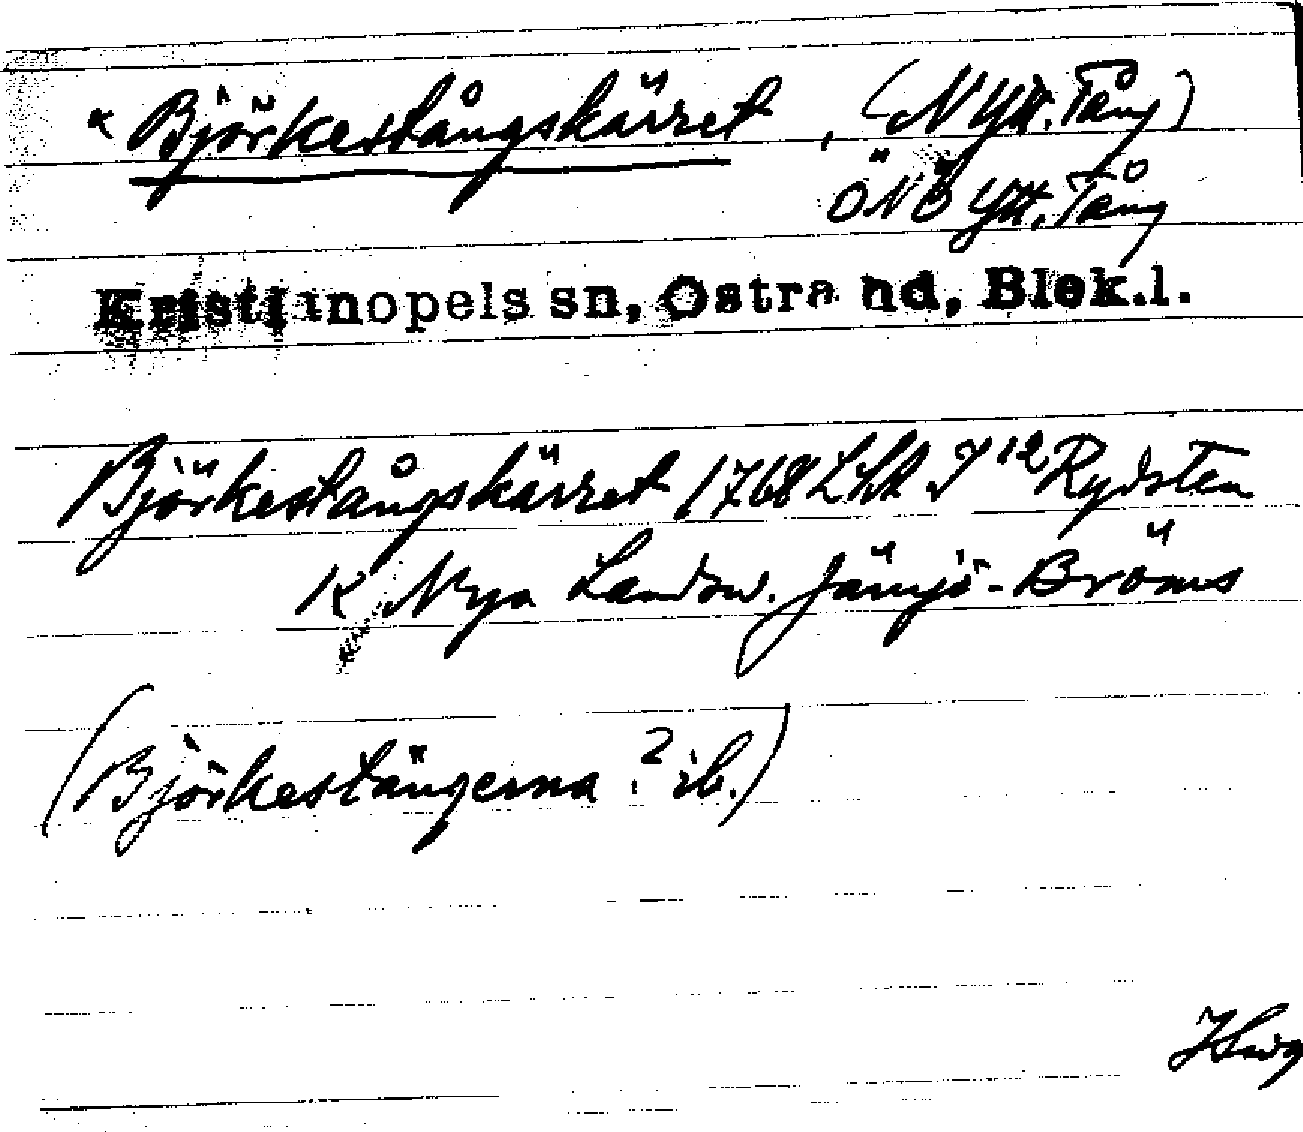 * Björkestångskärret, (N Ytt. Tång)
ÖNÖ Ytt. Tång
Kristianopels sn, Östra hd, Blek.l.
Björkestångskärret 1768 LSA I 12 Rydsten
K Nya Landsv. Jämjö-Bröms
(Björkestängerna ? ib.)